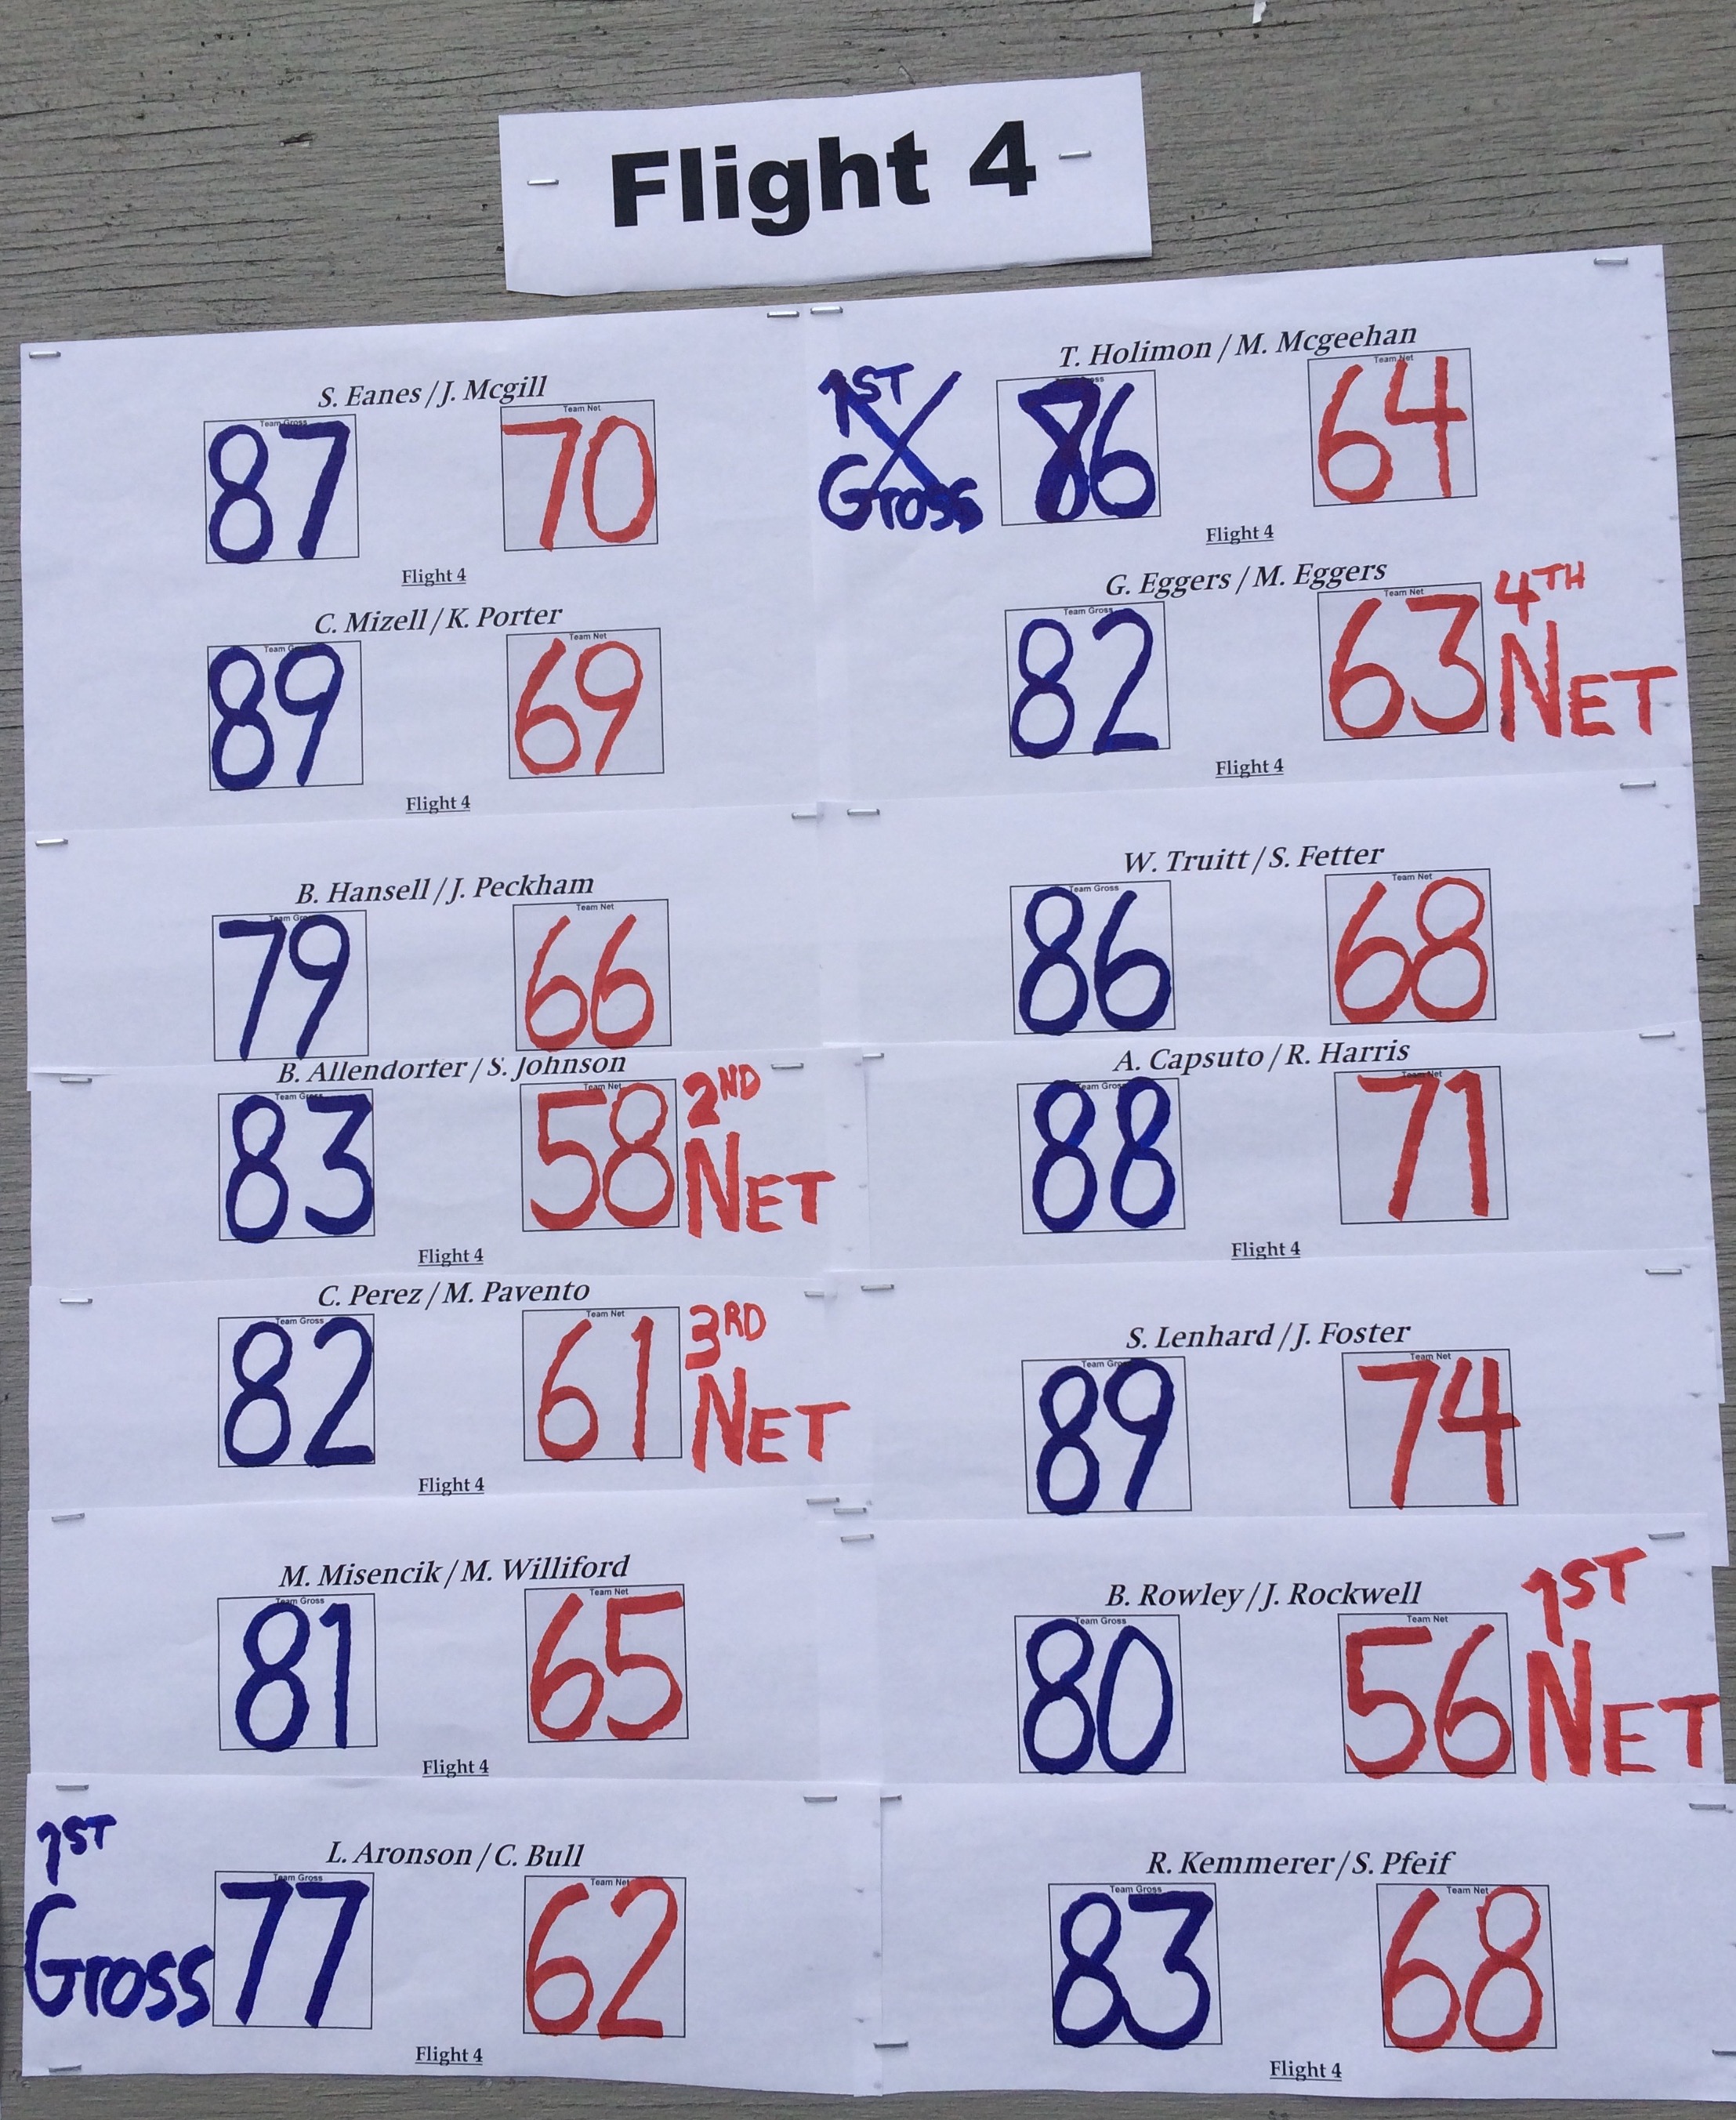 Flight 4
S. Eanes / J. Mcgill
Team Gross
Team Net
87
70
Flight 4
C. Mizell / K. Porter
Team Gross
Team Net
89
69
Flight 4
B. Hansell / J. Peckham
Team Gross
Team Net
79
66
B. Allendorfer / S. Johnson
Team Gross
Team Net
83
58
2ND
NET
Flight 4
C. Perez / M. Pavento
Team Gross
Team Net
82
61
3RD
NET
Flight 4
M. Misencik / M. Williford
Team Gross
Team Net
81
65
Flight 4
1ST
Gross
L. Aronson / C. Bull
Team Gross
Team Net
77
62
Flight 4
T. Holimon / M. Mcgeehan
1ST
Gross
Team Net
86
64
Flight 4
G. Eggers / M. Eggers
Team Gross
Team Net
82
63
4TH
NET
Flight 4
W. Truitt / S. Fetter
Team Gross
Team Net
86
68
A. Capsuto / R. Harris
Team Gross
Team Net
88
71
Flight 4
S. Lenhard / J. Foster
Team Gross
Team Net
89
74
B. Rowley / J. Rockwell
Team Gross
Team Net
80
56
1ST
NET
R. Kemmerer / S. Pfeif
Team Gross
Team Net
83
68
Flight 4